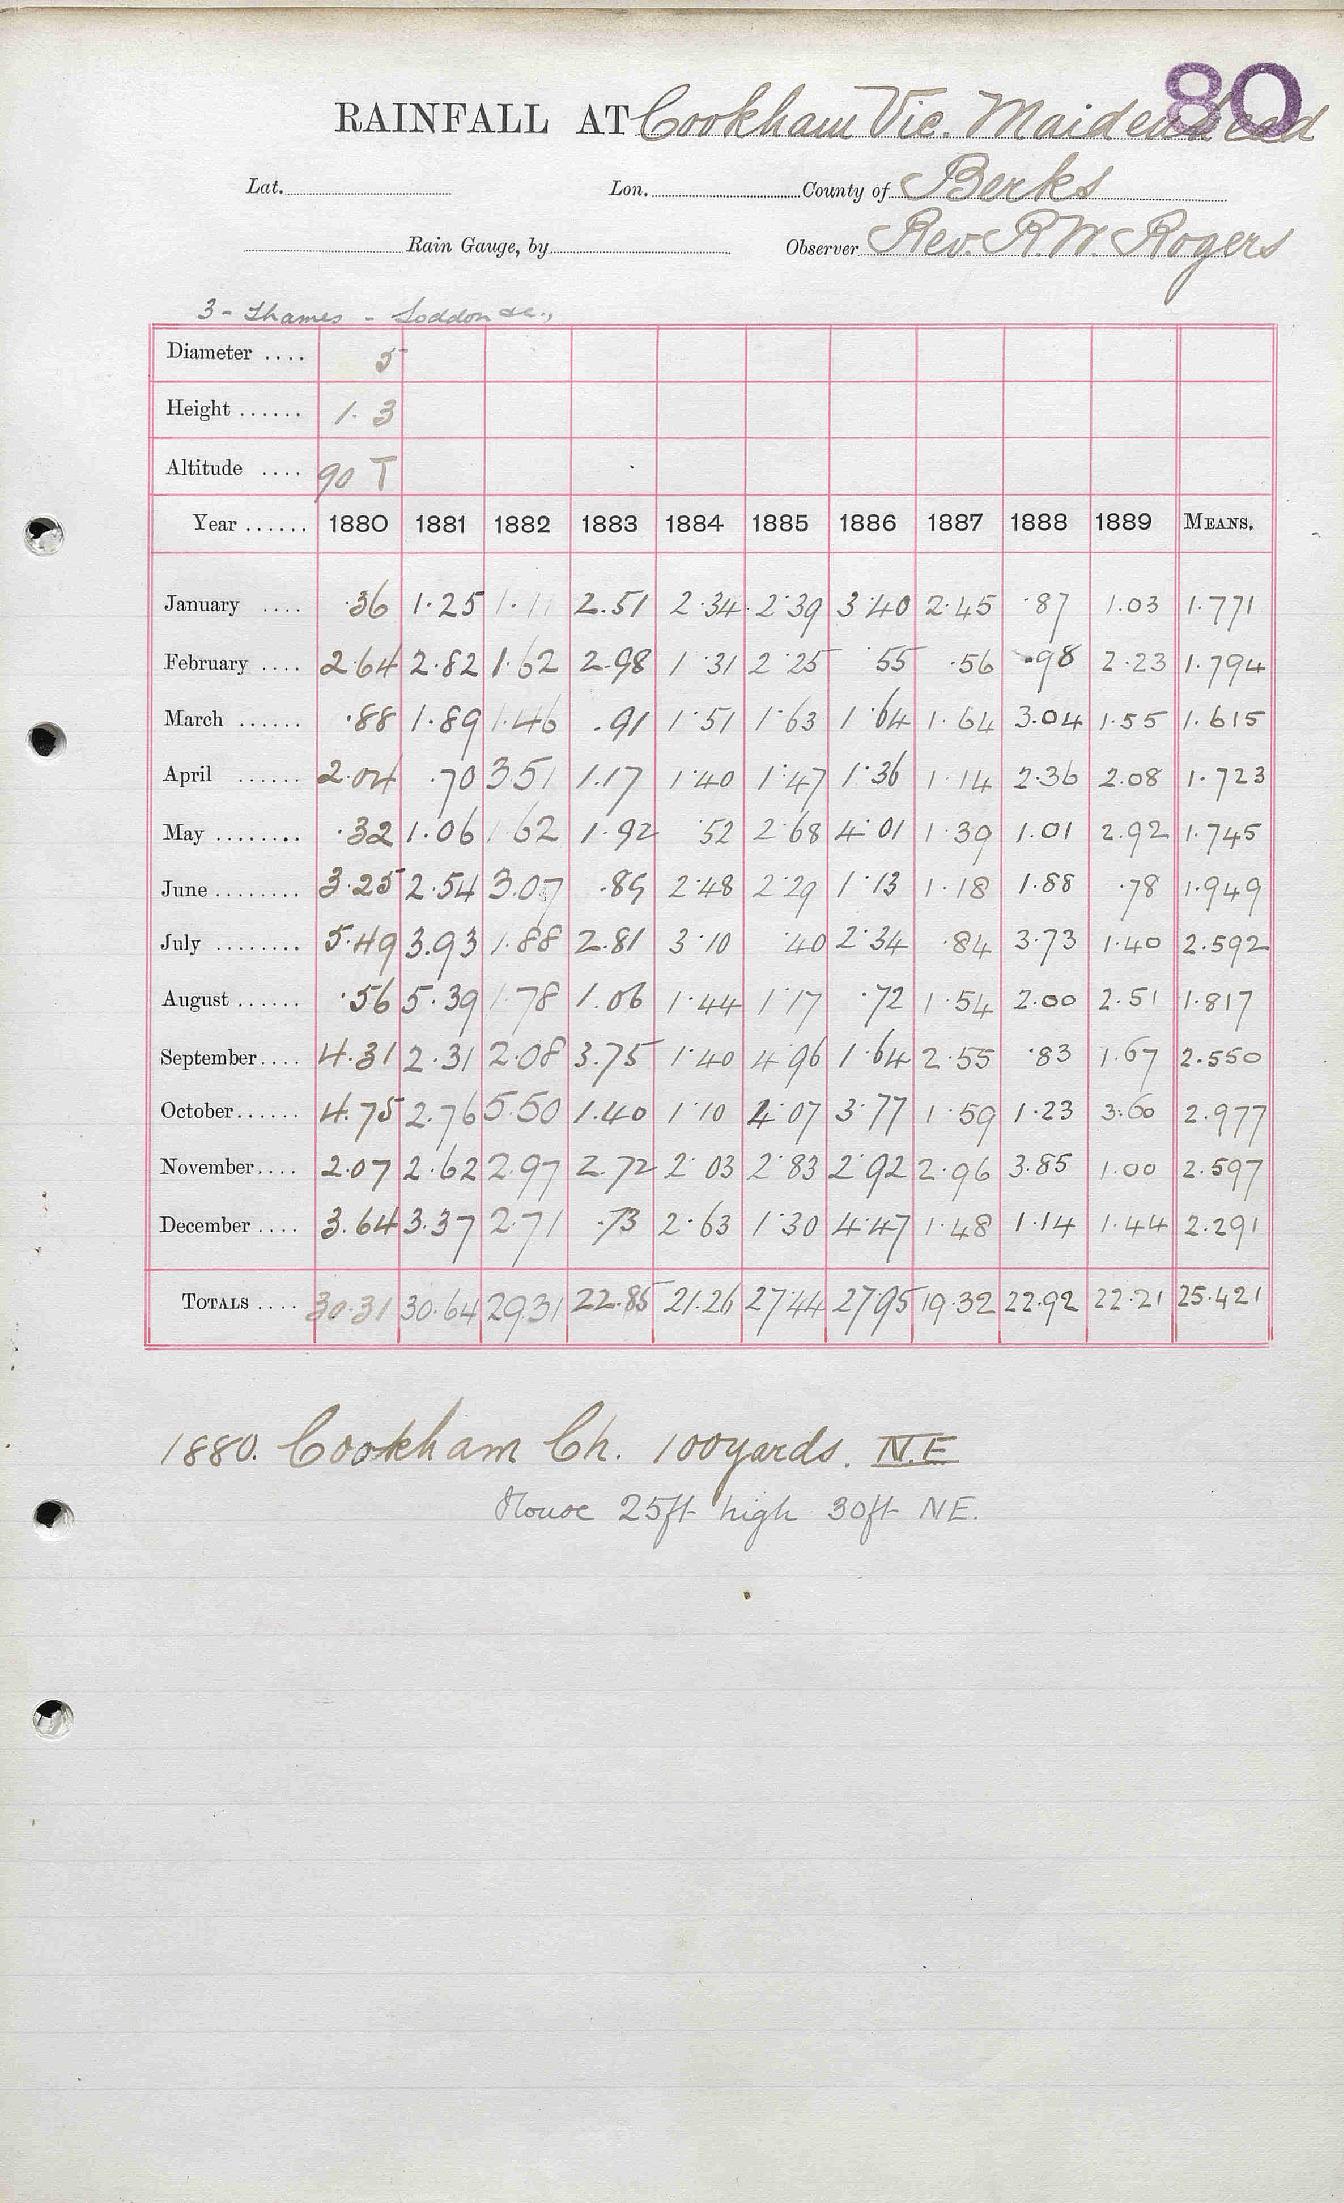 80
RAINFALL AT Cookham Vic. Maidenhead
Lat. Lon. County of Berks
Rain Gauge, by Observer Rev. R. W. Rogers
3 - Thames - Loddon &c.,
Diameter .... 5
Height ...... 1. 3
Altitude .... 90 T
Year ...... 1880 1881 1882 1883 1884 1885 1886 1887 1888 1889 MEANS.
January .... ·36 1·25 1·11 2.51 2·34 2·39 3·40 2·45 ·87 1.03 1.771
February .... 2·64 2·82 1·62 2·98 1·31 2·25 ·55 ·56 ·98 2·23 1.794
March ...... ·88 1·89 1·46 .91 1·51 1·63 1·64 1·64 3.04 1.55 1.615
April ...... 2·04 .70 3.51 1.17 1·40 1·47 1·36 1·14 2·36 2.08 1.723
May ........ ·32 1·06 1·62 1.92 ·52 2·68 4·01 1·39 1.01 2.92 1.745
June ........ 3·25 2·54 3.07 .89 2·48 2·29 1·13 1·18 1.88 .78 1.949
July ........ 5·49 3.93 1.88 2.81 3·10 ·40 2·34 ·84 3.73 1.40 2.592
August ...... ·56 5·39 1·78 1.06 1·44 1·17 ·72 1·54 2.00 2.51 1.817
September .... 4·31 2·31 2·08 3.75 1·40 4·96 1·64 2·55 ·83 1.67 2.550
October ...... 4.75 2.76 5.50 1.40 1·10 4·07 3·77 1·59 1·23 3.60 2.977
November .... 2.07 2.62 2.97 2.72 2·03 2·83 2·92 2·96 3.85 1.00 2.597
December .... 3.64 3.37 2.71 .73 2·63 1·30 4·47 1·48 1·14 1.44 2.291
TOTALS .... 30·31 30.64 29.31 22.85 21·26 27·44 27·95 19·32 22.92 22·21 25.421
1880. Cookham Ch. 100 yards. N.E
House 25ft high 30ft NE.